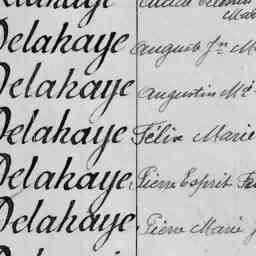 Delahaye August Jn M
Delahaye Augustin Me
Delahaye Félix Marie
Delahaye, Pierre Esprit
Delahaye, Pierre Marie